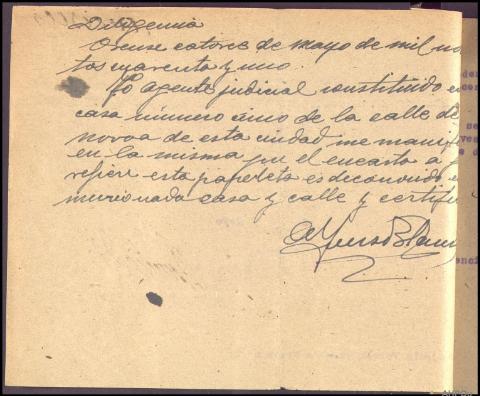 Diligencia
Orense catorce de mayo de mil no
tos cuarenta y uno.
Yo agente judicial constituido en
casa número cinco de la calle de
novoa de esta ciudad me mani
en la misma que el encarta a
refiere esta papeleta es deconocido e
mencionada casa y calle y certifi
Alfonso Blan